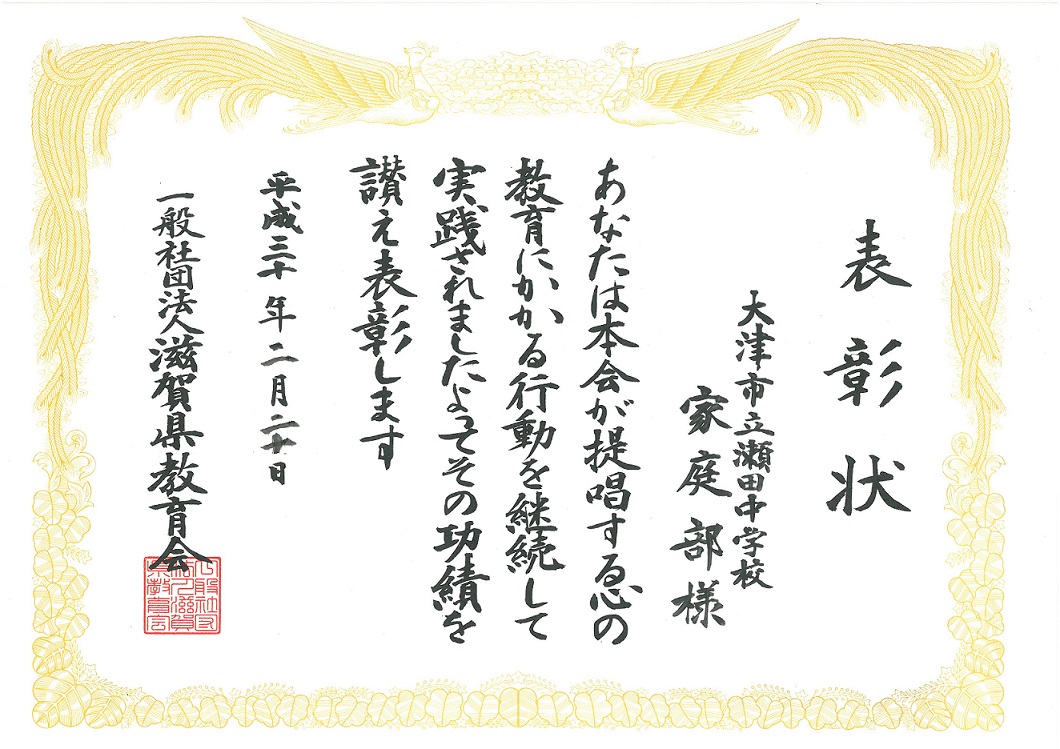 表彰状
大津市立瀬田中学校
家庭部様
あなたは本会が提唱する心の
教育にかかる行動を継続して
実践されましたよってその功績を
讃え表彰します
平成三十年二月二十日
一般社団法人滋賀県教育会
一般社団
法人滋賀
県教育会